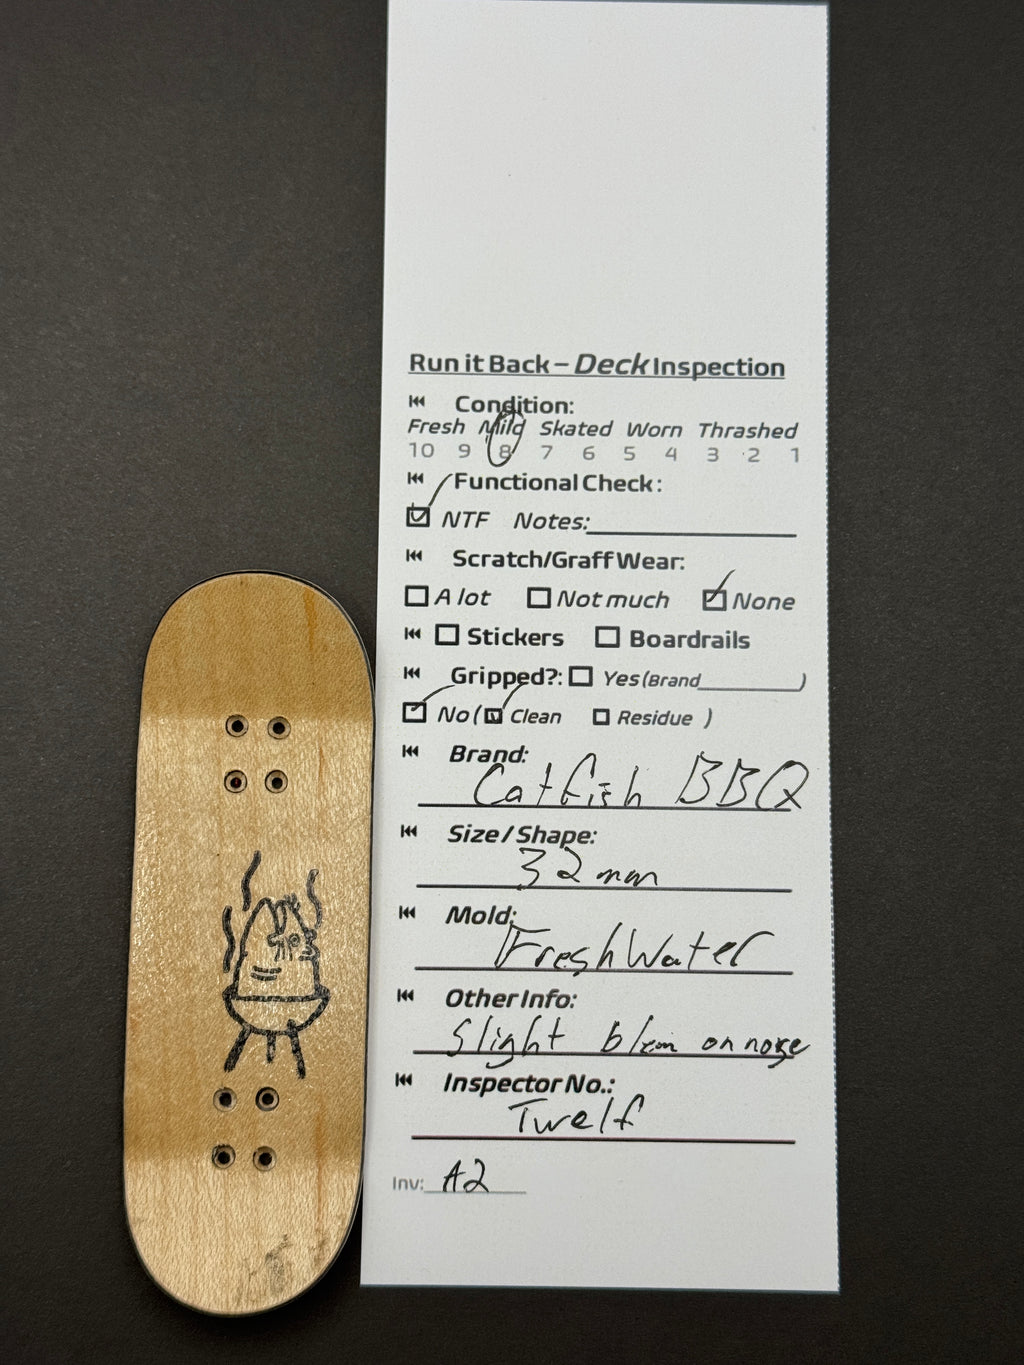 Run it Back – Deck Inspection
Condition:
Fresh Mild Skated Worn Thrashed
10 9 8 7 6 5 4 3 2 1
Functional Check:
NTF Notes:
Scratch/Graff Wear:
A lot Not much None
Stickers Boardrails
Gripped?: Yes (Brand )
No ( Clean Residue )
Brand:
Catfish BBQ
Size / Shape:
32mm
Mold:
FreshWater
Other Info:
Slight blem on nose
Inspector No.:
Twelf
Inv: A2